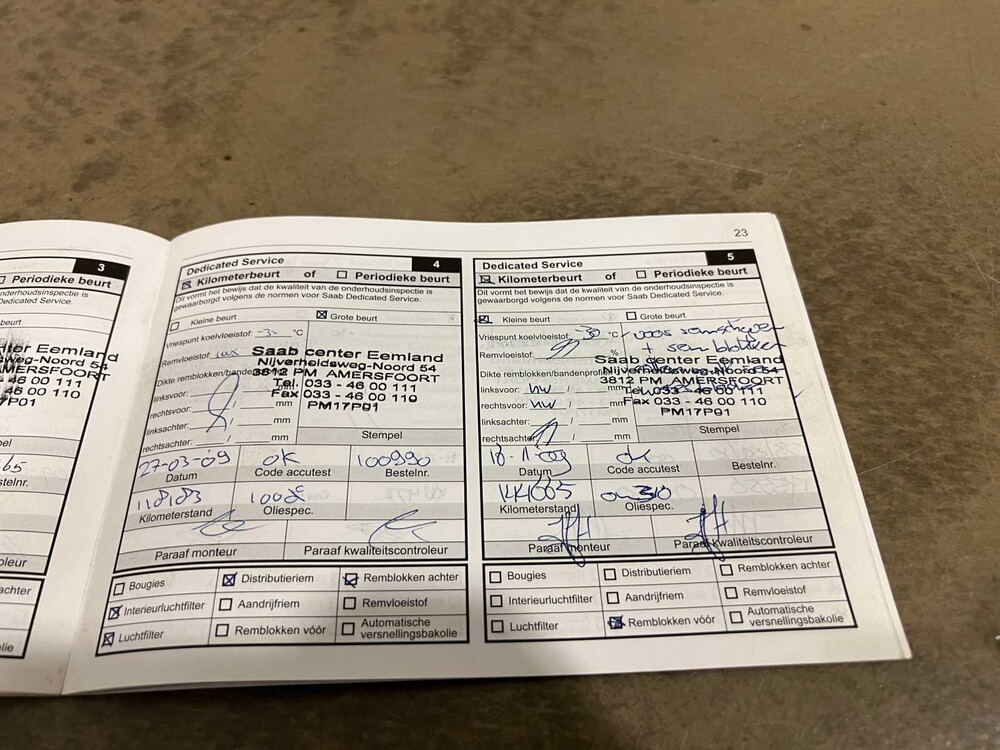 23
3
Periodieke beurt
onderhoudsinspectie is
Dedicated Service.
beurt
nter Eemland
sweg-Noord 54
AMERSFOORT
- 46 00 111
- 46 00 110
P01
pel
65
elnr.
oleur
achter
olie
Dedicated Service 4
Kilometerbeurt of Periodieke beurt
Dit vormt het bewijs dat de kwaliteit van de onderhoudsinspectie is
gewaarborgd volgens de normen voor Saab Dedicated Service.
Kleine beurt Grote beurt
Vriespunt koelvloeistof: °C
Remvloeistof:
Saab center Eemland
Nijverheidsweg-Noord 54
Dikte remblokken/
3812 PM AMERSFOORT
Tel. 033 - 46 00 111
linksvoor: / mm
Fax 033 - 46 00 110
rechtsvoor: / mm
PM17P01
linksachter: / mm
rechtsachter: / mm
Stempel
27-03-09 OK 100990
Datum Code accutest Bestelnr.
118183
Kilometerstand Oliespec.
Paraaf monteur Paraaf kwaliteitscontroleur
Bougies Distributieriem Remblokken achter
Interieurluchtfilter Aandrijfriem Remvloeistof
Luchtfilter Remblokken vóór Automatische
versnellingsbakolie
Dedicated Service 5
Kilometerbeurt of Periodieke beurt
Dit vormt het bewijs dat de kwaliteit van de onderhoudsinspectie is
gewaarborgd volgens de normen voor Saab Dedicated Service.
Kleine beurt Grote beurt
Vriespunt koelvloeistof: -30 °C
Remvloeistof: %
Saab center Eemland
Dikte remblokken/bandenprofiel
Nijverheidsweg-Noord 54
3812 PM AMERSFOORT
linksvoor: / mm
Tel. 033 - 46 00 111
rechtsvoor: / mm
Fax 033 - 46 00 110
PM17P01
linksachter: / mm
rechtsachter: / mm
Stempel
18-11-09 ok
Datum Code accutest Bestelnr.
Kilometerstand Oliespec.
Paraaf monteur Paraaf kwaliteitscontroleur
Bougies Distributieriem Remblokken achter
Interieurluchtfilter Aandrijfriem Remvloeistof
Luchtfilter Remblokken vóór Automatische
versnellingsbakolie